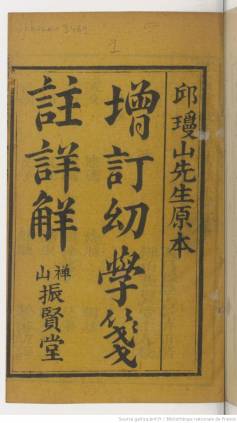 邱瓊山先生原本
增訂幼學箋
註詳解
禪山振賢堂
1
Source gallica.bnf.fr / Bibliothèque nationale de France